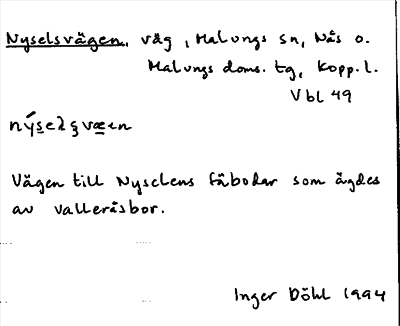 Nyselsvägen, väg, Malungs sn, Nås o.
Malungs doms. tg, Kopp. l.
Vbl 49
Vägen till Nyselens fäbodar som ägdes
av valleråsbor.
Inger Döhl 1994